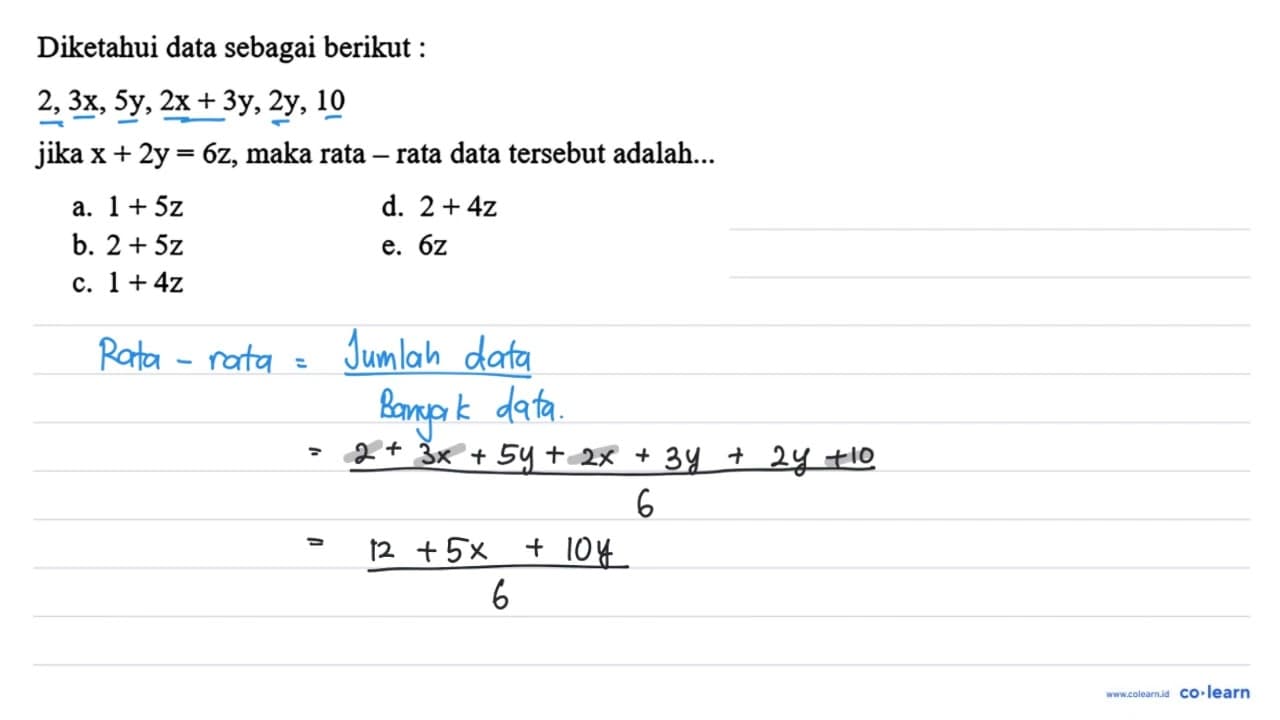 Diketahui data sebagai berikut :
2, 3x, 5y, 2x + 3y, 2y, 10
jika x + 2y = 6z, maka rata – rata data tersebut adalah...
a. 1 + 5z
d. 2 + 4z
b. 2 + 5z
e. 6z
c. 1 + 4z
Rata - rata = Jumlah data
Banyak data.
= 2 + 3x + 5y + 2x + 3y + 2y +10
6
= 12 + 5x + 10y
6
www.colearn.id co·learn